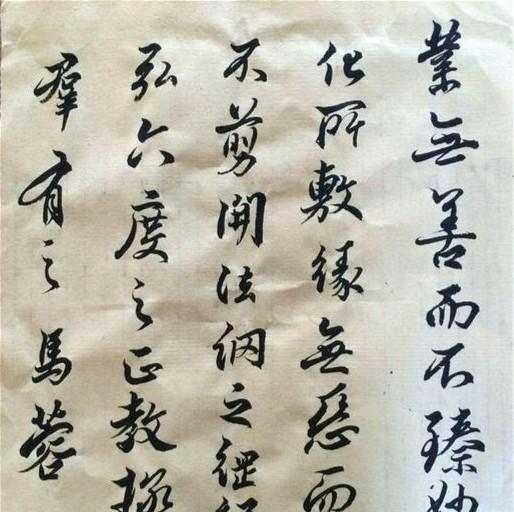 業無善而不臻妙
化所敷緣無惡而
不剪開法網之
弘六度之正教拯
羣有之馬蓉